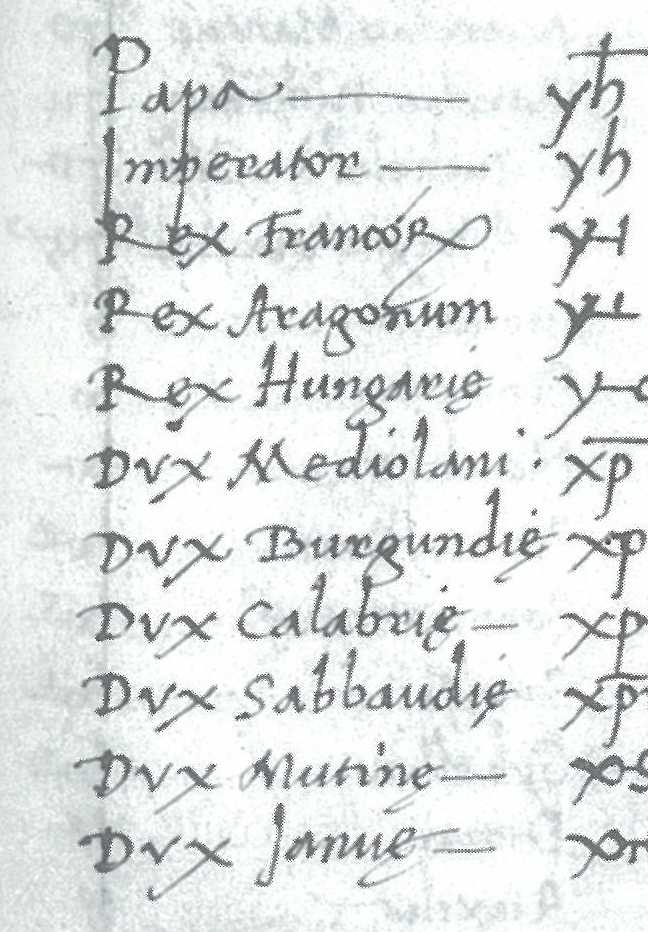 Papa — yħ
Imperator — yh
Rex Francoꝝ
Rex Aragonum
Rex Hungarię
Dvx Mediolani · xp
Dvx Burgundię xp
Dvx Calabrię — xp
Dvx Sabbaudię xp
Dvx Mutinę —
Dvx Januę —